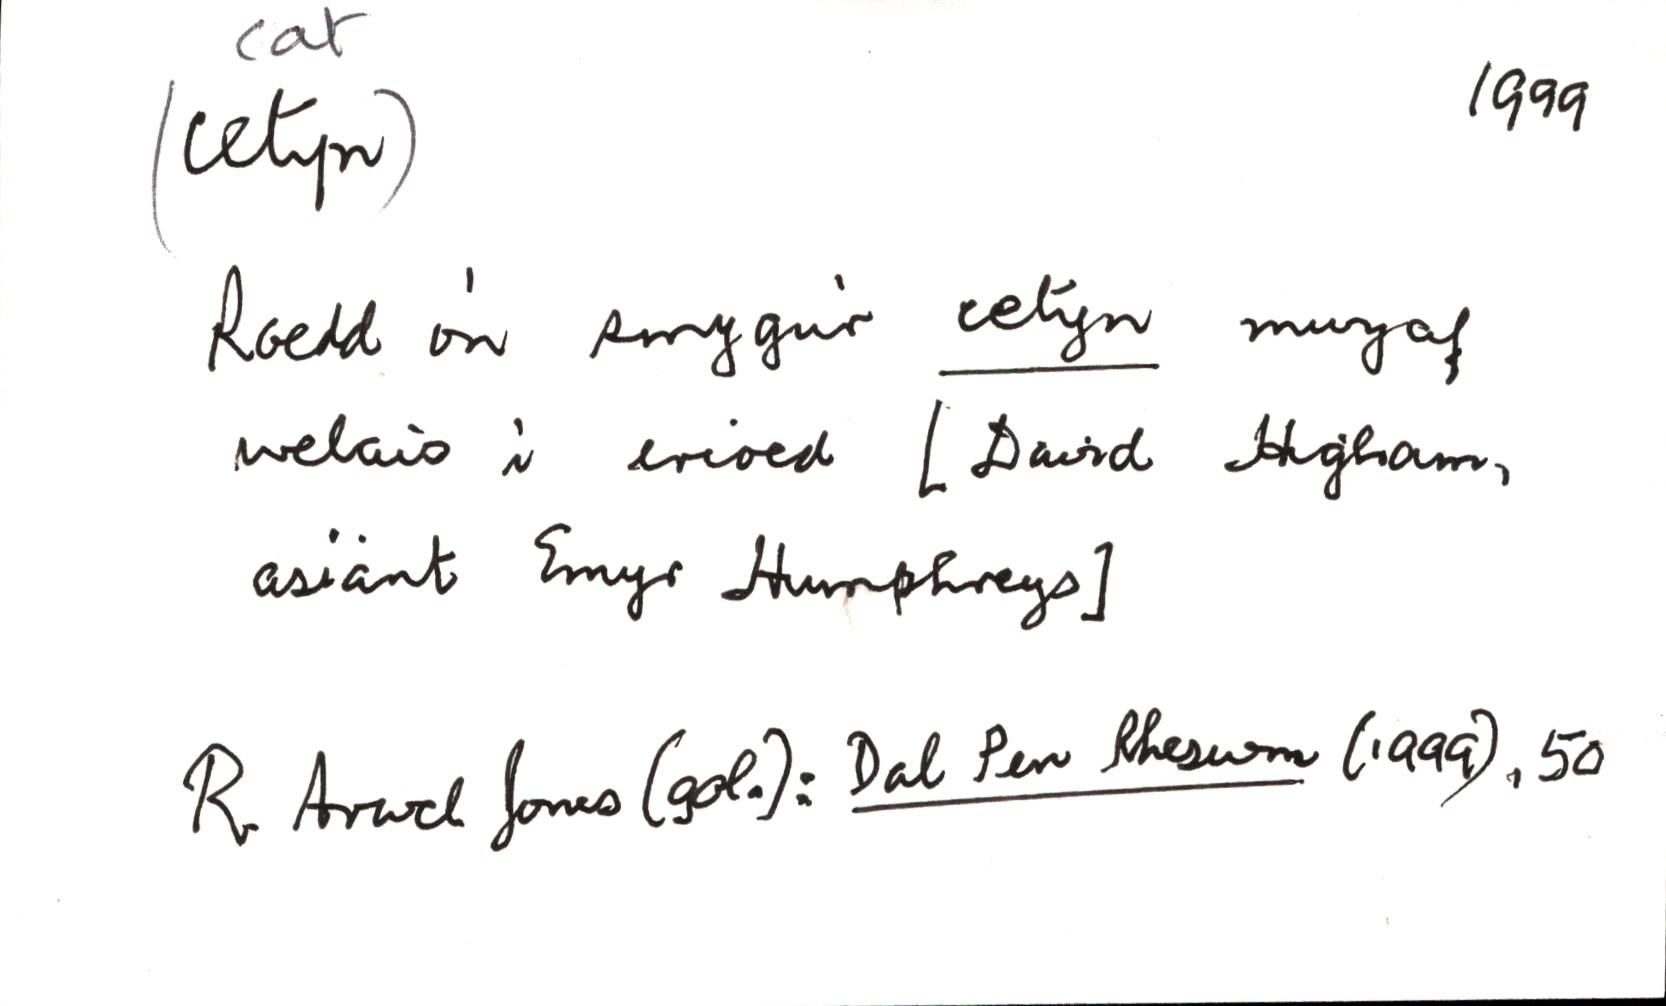 cat
1999
(cetyn)
Roedd o'n smygu'r cetyn mwyaf
welais i erioed [David Higham,
asiant Emyr Humphreys]
R. Arwel Jones (gol.): Dal Pen Rheswm (1999), 50